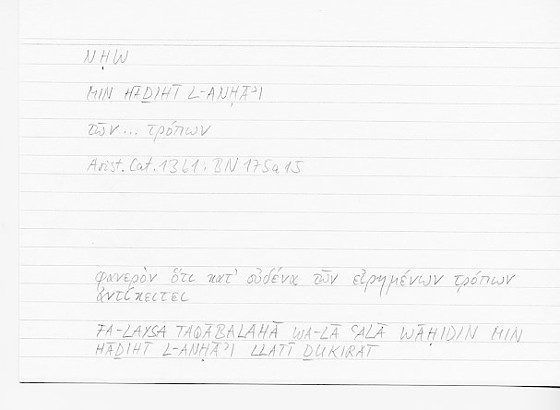 NḤW
MIN HĀḎIHĪ L-ANḤĀʾI
τῶν ... τρόπων
Arist. Cat. 13b1 : BN 175a15
φανερὸν ὅτι κατ' οὐδένα τῶν εἰρημένων τρόπων
ἀντίκειται
FA-LAYSA TAQĀBALAHĀ WA-LĀ ʿALĀ WĀḤIDIN MIN
HĀḎIHĪ L-ANḤĀʾI LLATĪ ḎUKIRAT